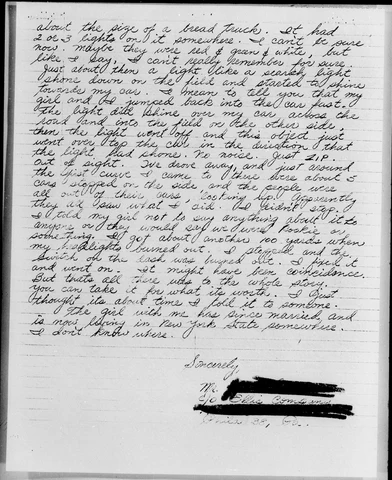 about the size of a bread truck. It had
2 or 3 lights on it somewhere. I can't be sure
now. maybe they were red & green & white, but
like I say, I can't really remember for sure.
Just about then a light like a search light
shone down on the field and started to shine
towards my car. I mean to tell you that my
girl and I jumped back into the car fast.
The light still shone over my car across the
road and into the field on the other side
then the light went off and this object just
went over top the car in the direction that
the light had shone. No noise. Just ZIP -
out of sight. We drove away, and just around
the first curve I came to there were about 5
cars stopped on the side and the people were
all out of their cars, looking up. Apparently
they all saw what I did. We didn't stop.
I told my girl not to say anything about it to
anyone or they would say we were kookie or
something. I got about another 100 yards when
my headlights burned out. I stopped and the
switch on the dash was burned out. I fixed it
and went on. It might have been coincidence.
But that's all there was to the whole story.
You can take it for what its worth. I just
thought its about time I told it to someone.
The girl with me has since married and
is now living in New York State somewhere.
I don't know where.
Sincerely,
Mr.
c/o Ellis Company
Pa.